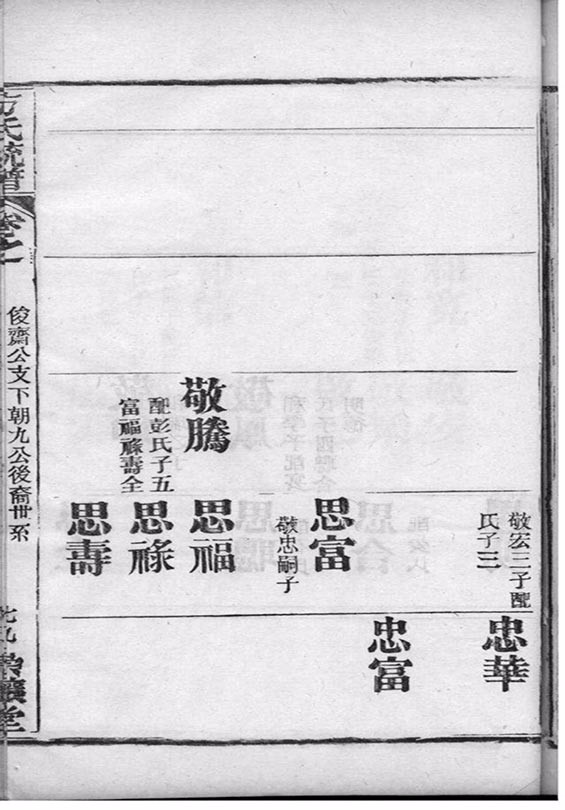 敬宏三子配
氏子三
忠華
思富
忠富
敬忠嗣子
敬騰
配彭氏子五
富福祿壽全
思福
思祿
思壽
方氏統譜
卷之
俊齋公支下朝九公後裔世系
堂